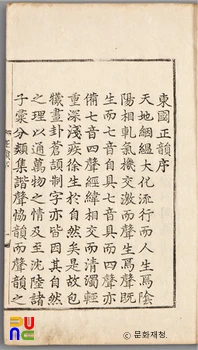 東國正韻序
天地絪縕大化流行而人生焉陰
陽相軋氣機交激而聲生焉聲旣
生而七音自具七音具而四聲亦
備七音四聲經緯相交而淸濁輕
重深淺疾徐生於自然矣是故包
犧畫卦蒼頡制字亦皆因其自然
之理以通萬物之情及至沈陸諸
子彙分類集諧聲協韻而聲韻之
© 문화재청.